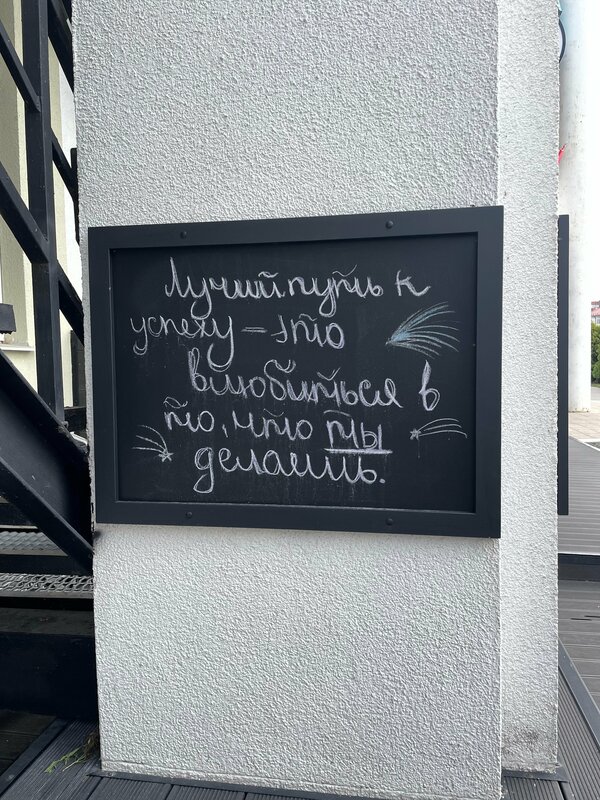 Лучший путь к
успеху – это
влюбиться в
то, что ты
делаешь.